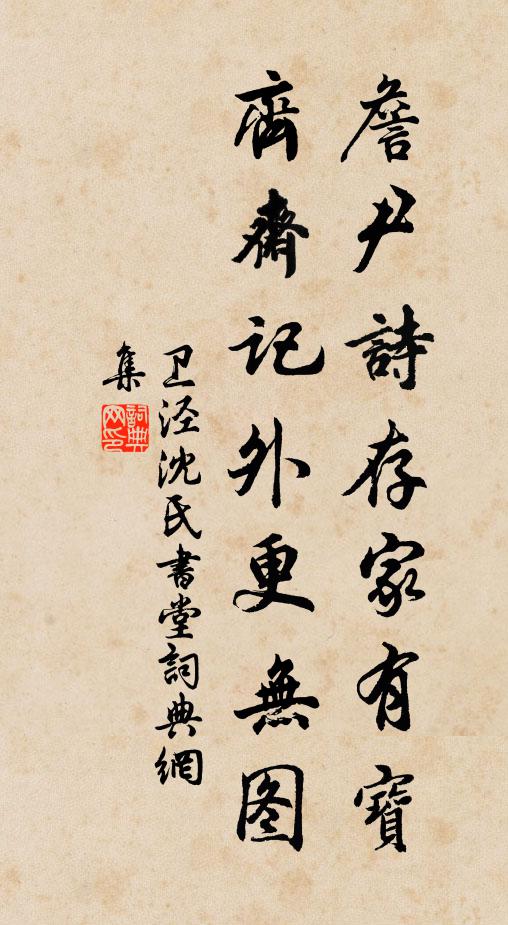 詹尹詩存家有寶
齊齋記外更無图
卫泾沈氏書堂詞典網
集
詞典网印